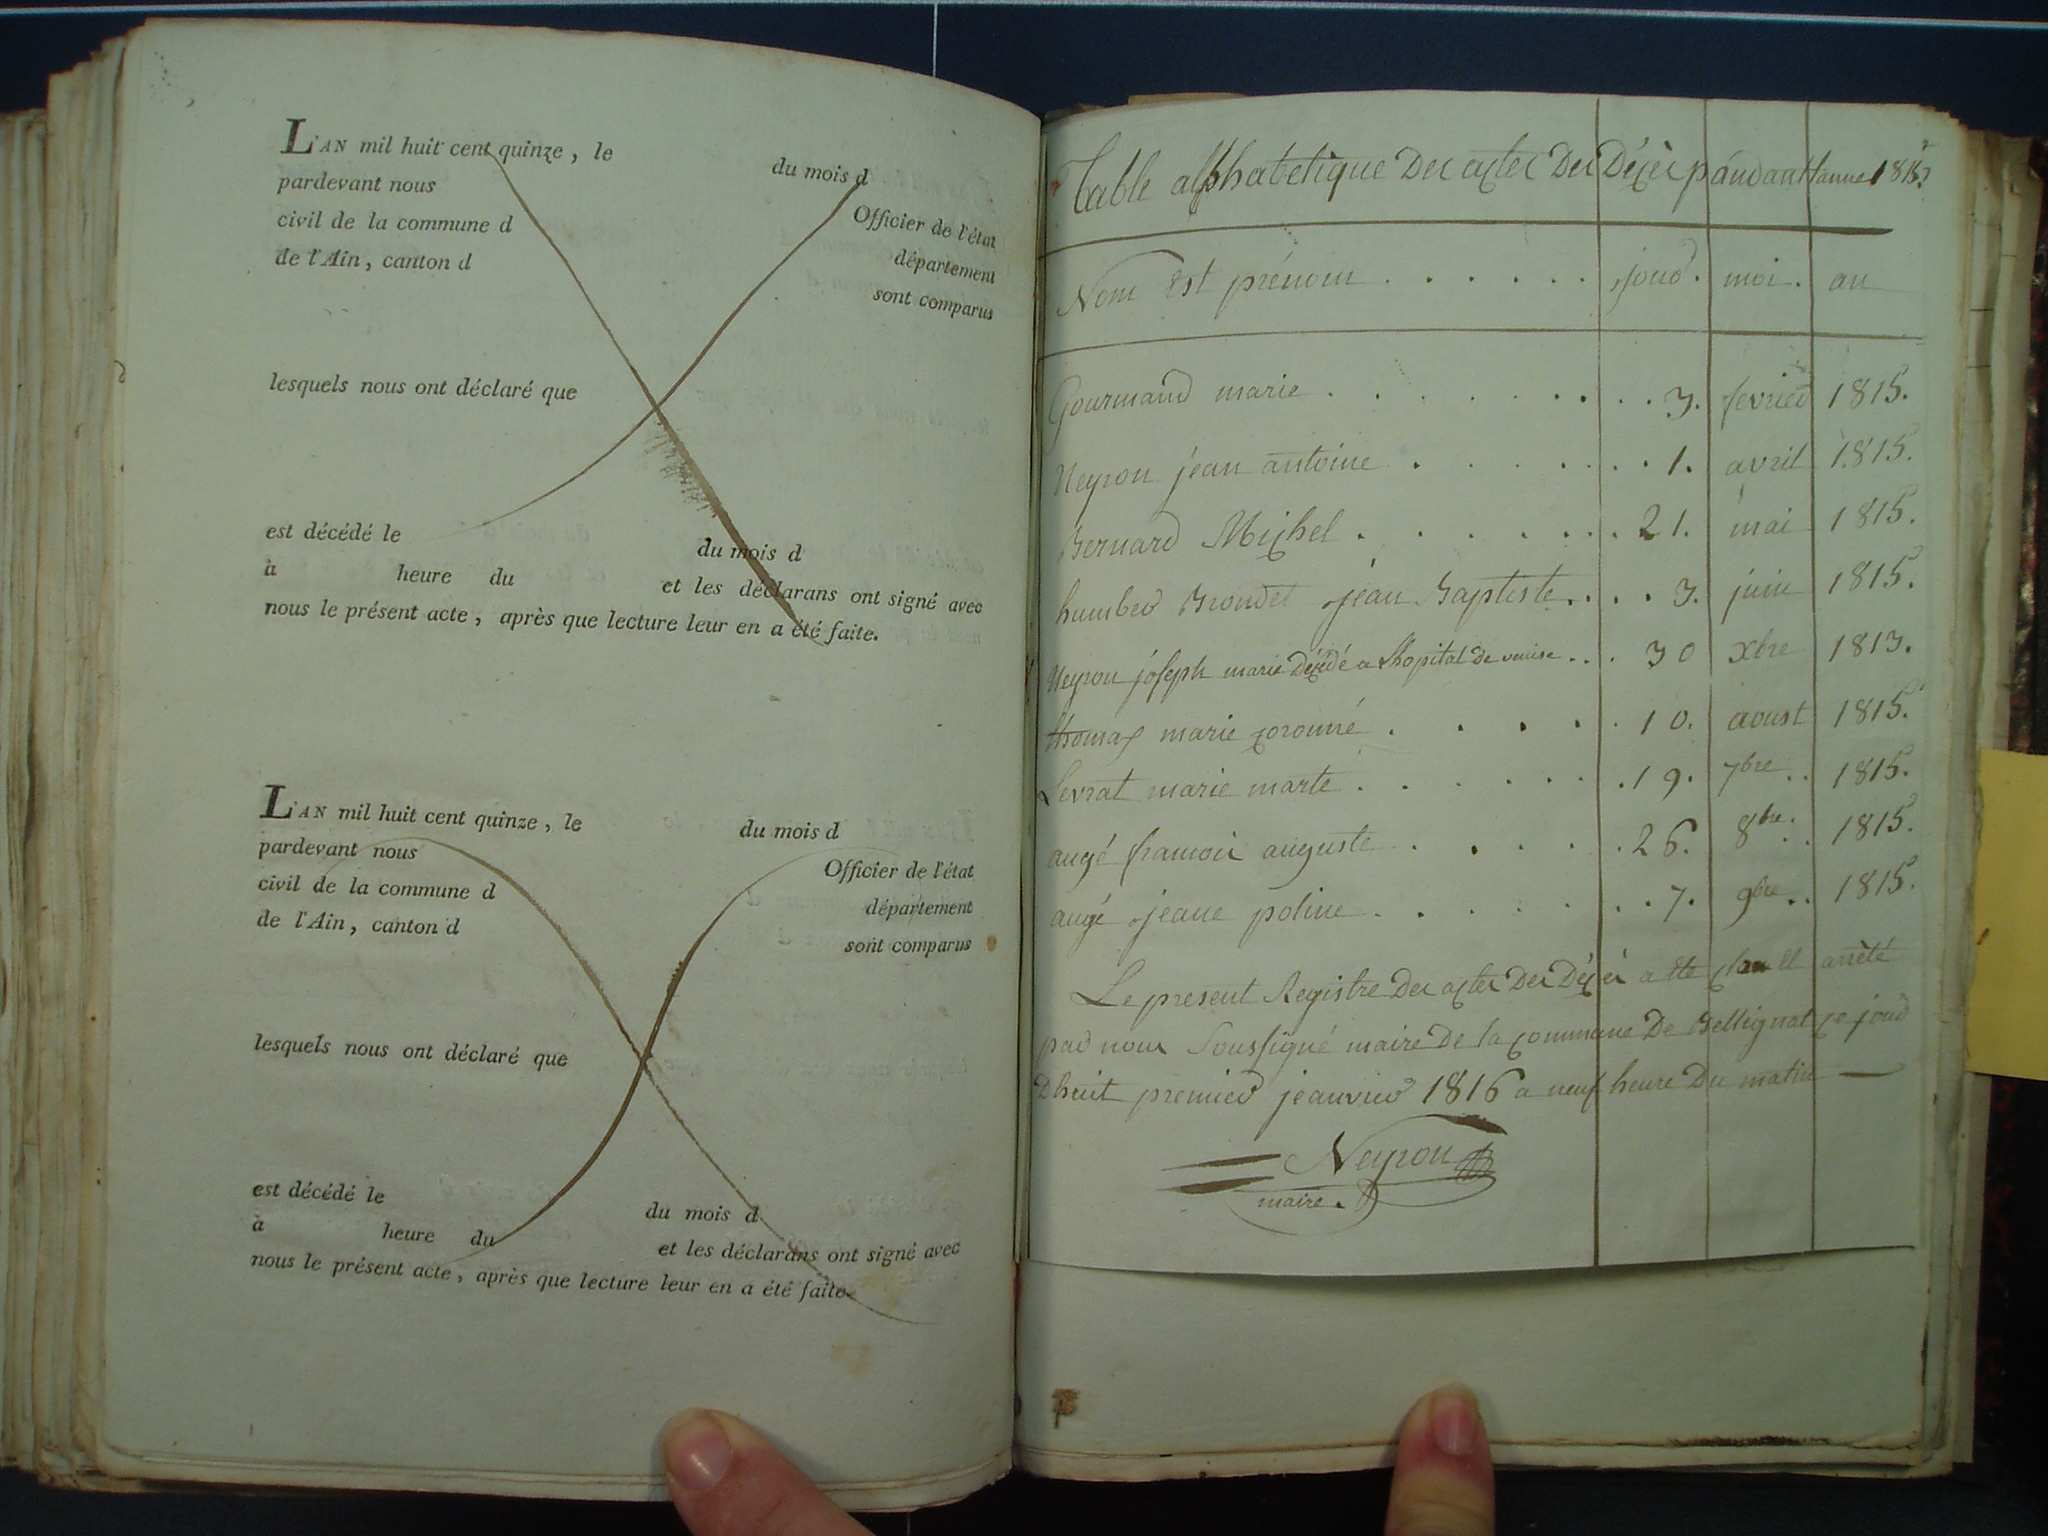 L'AN mil huit cent quinze, le du mois d
pardevant nous Officier de l'état
civil de la commune d département
de l'Ain, canton d sont comparus
lesquels nous ont déclaré que
est décédé le du mois d
à heure du et les déclarans ont signé avec
nous le présent acte, après que lecture leur en a été faite.
L'AN mil huit cent quinze, le du mois d
pardevant nous Officier de l'état
civil de la commune d département
de l'Ain, canton d sont comparus
lesquels nous ont déclaré que
est décédé le du mois d
à heure du et les déclarans ont signé avec
nous le présent acte, après que lecture leur en a été faite.
Table alphabetique des actes des décès pandant lanne 1815
Nom est prénom . . . . . . jour. moi. an
Gourmand marie . . . . . . . . . . 3. fevrier 1815.
Neyron jean antoine . . . . . . . 1. avril 1815.
Bernard Michel . . . . . . . 21. mai 1815.
humber Brondel jean Baptiste . . . . 3. juin 1815.
Neyron joseph marie décédé a lhopital de venise . . . 30 Xbre 1813.
thomas marie . . . . . 10. aoust 1815.
Levrat marie marte . . . . . . . 19. 7bre .. 1815.
augé francois auguste . . . . . . 26. 8bre . . 1815.
augé jeane poline . . . . . . . . 7. 9bre .. 1815.
Le present Registre des actes des décès a ete clos et arrêté
par nous soussigné maire de la commune de Bellignat ce jour
dhuit premier jeanvier 1816 a neuf heure du matin
Neyron
maire.